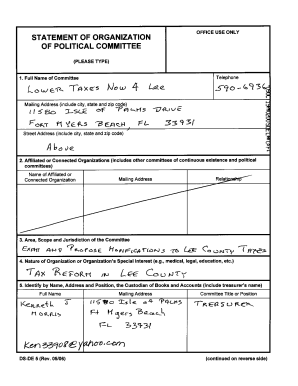 STATEMENT OF ORGANIZATION
OF POLITICAL COMMITTEE
(PLEASE TYPE)
OFFICE USE ONLY
1. Full Name of Committee
Telephone
LOWER TAXES NOW 4 LEE
590-6936
Mailing Address (include city, state and zip code)
11580 ISLE OF PALMS DRIVE
FORT MYERS BEACH, FL 33931
Street Address (include city, state and zip code)
Above
2. Affiliated or Connected Organizations (includes other committees of continuous existence and political
committees)
Name of Affiliated or
Connected Organization
Mailing Address
Relationship
3. Area, Scope and Jurisdiction of the Committee
AND PROPOSE MODIFICATIONS TO LEE COUNTY TAXES
4. Nature of Organization or Organization's Special Interest (e.g., medical, legal, education, etc.)
TAX REFORM IN LEE COUNTY
5. Identify by Name, Address and Position, the Custodian of Books and Accounts (include treasurer's name)
Full Name
Mailing Address
Committee Title or Position
Kenneth J
MORRIS
11580 Isle of PALMS
Ft Myers Beach
FL 33931
TREASURER
Ken33908@yahoo.com
DS-DE 5 (Rev. 05/06)
(continued on reverse side)